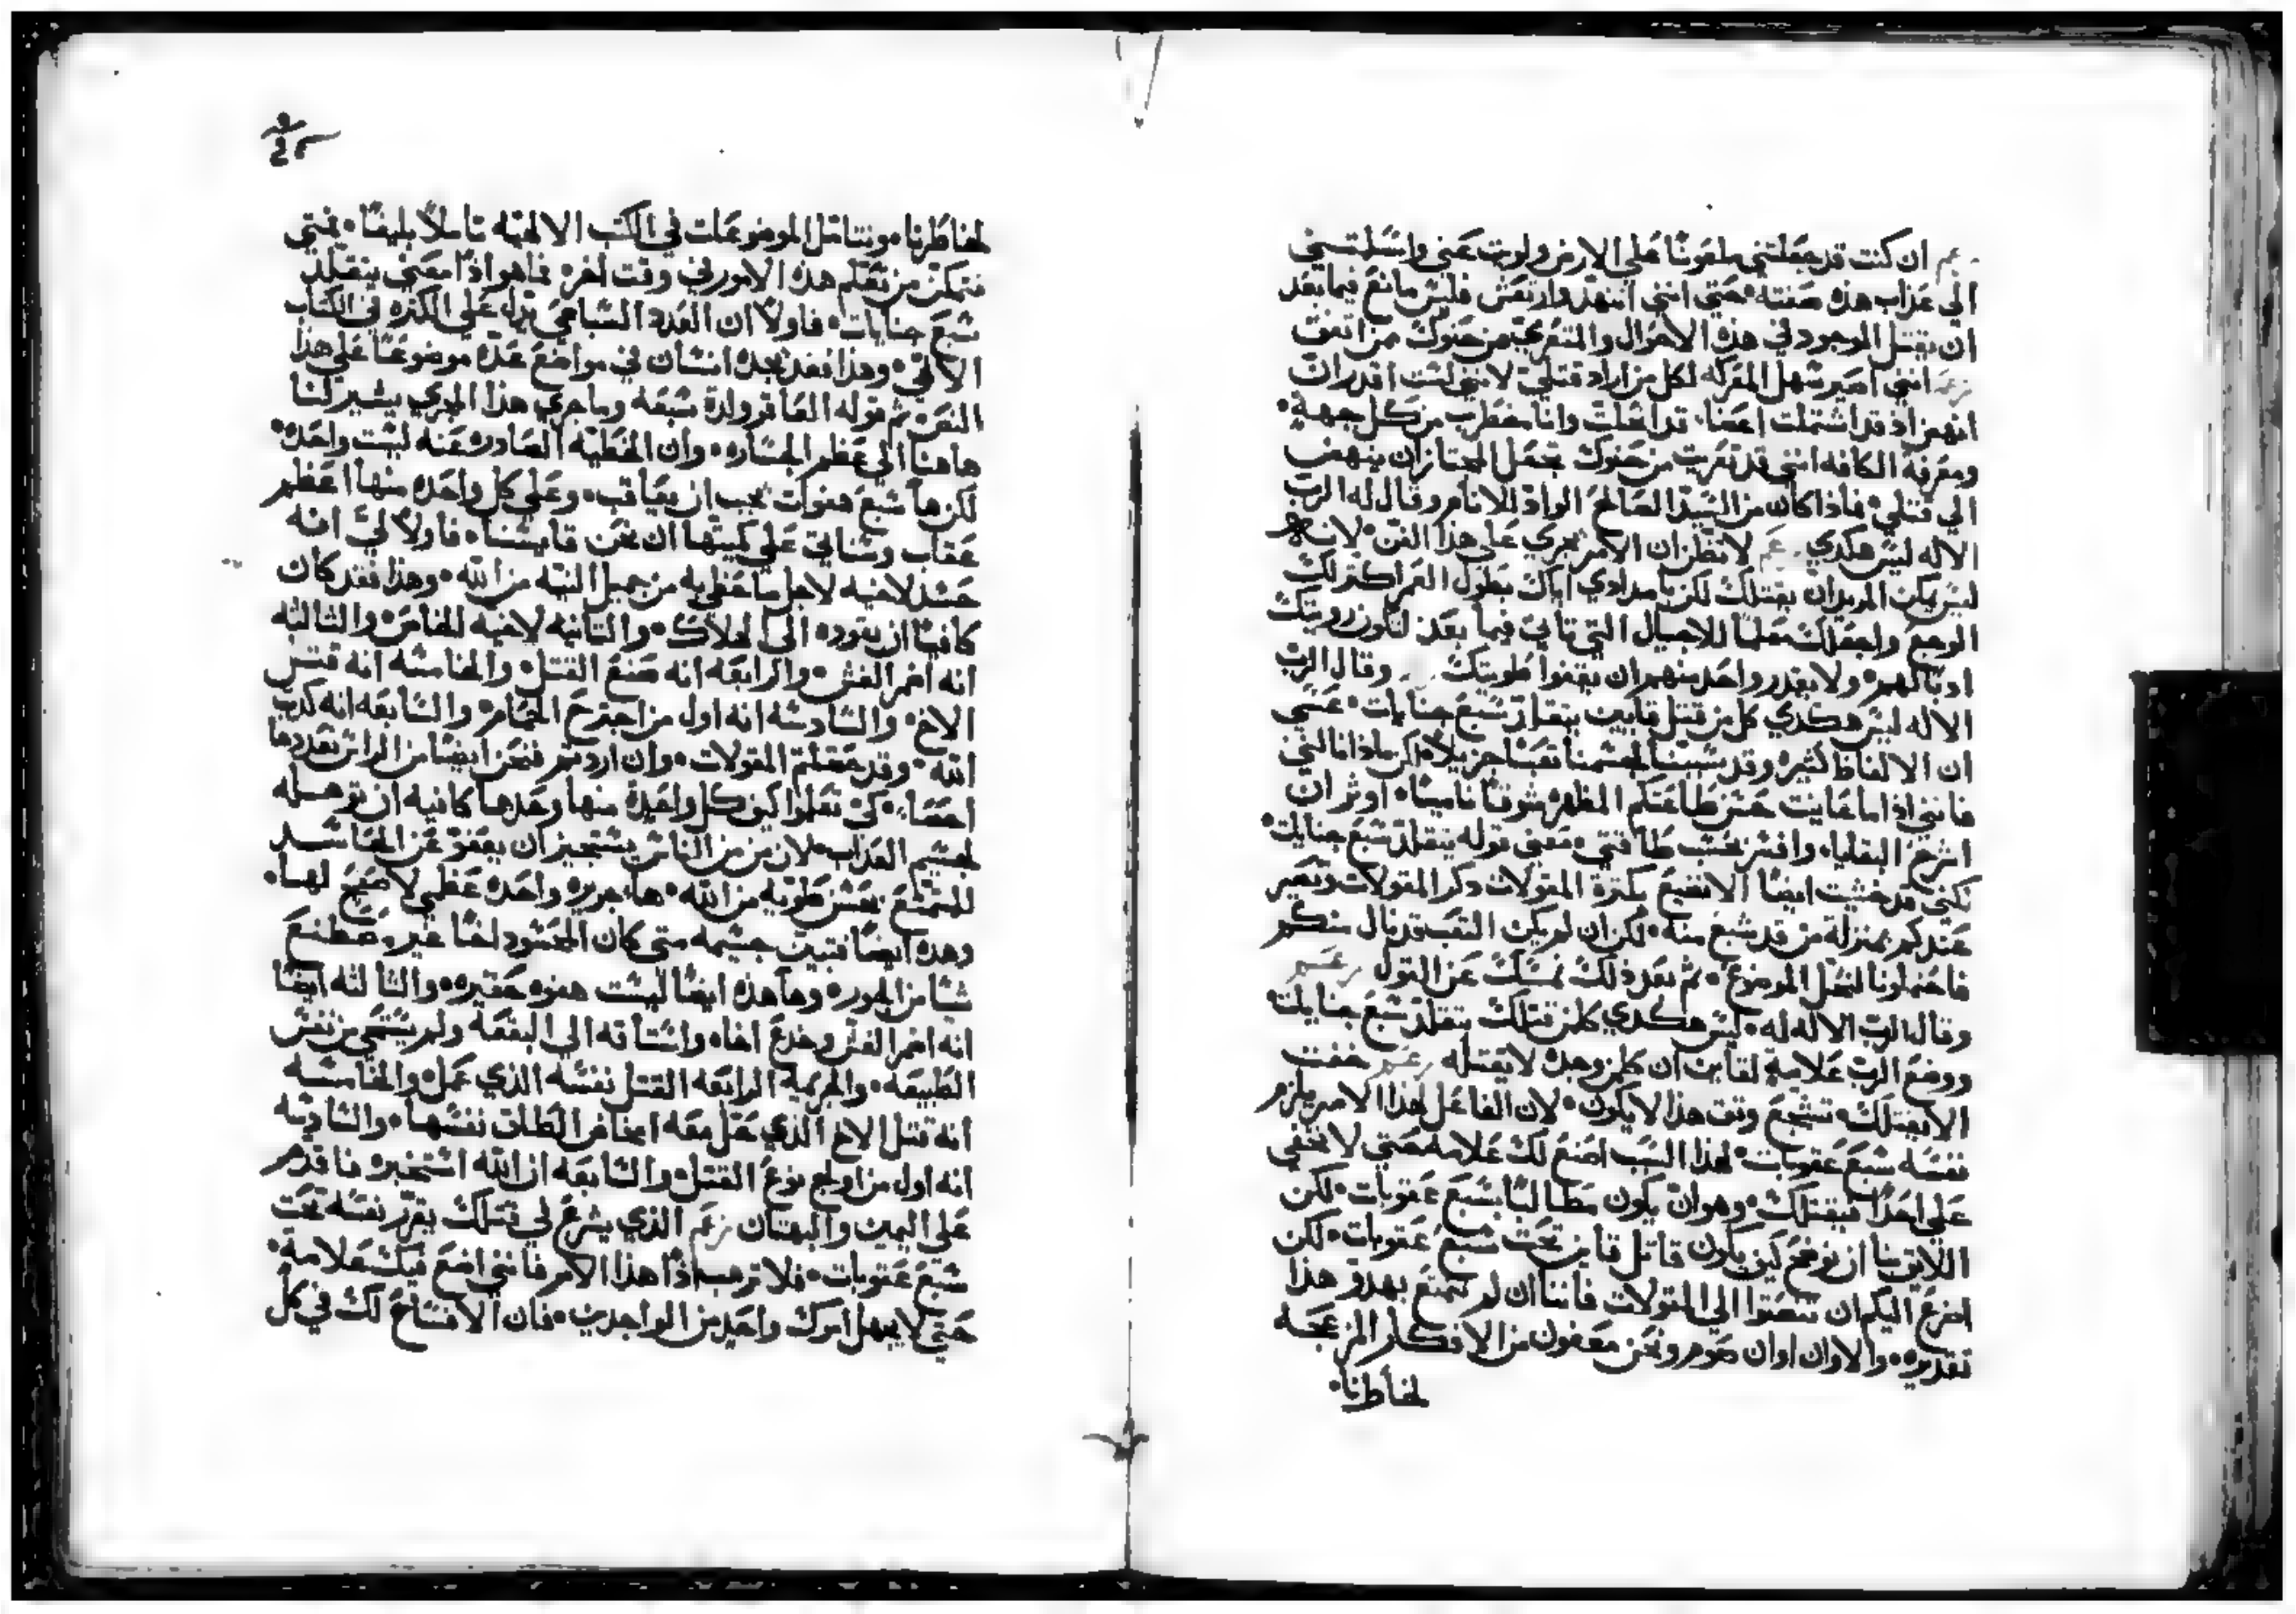 زعم ان كنت قد جعلتني ملعونًا على الارض ولويت عني واسلمتني
الى عذاب هذه صفته حتى انني اتنهد وارتعش فليس مانع فيما بعد
ان يقتل الموجود في هذه الاحوال والمتعري من حنوك من اتفق
زعم انني اصير سهل المعركه لكل من اراد قتلي لانني لست اقدر ان
انهض اذ قد اشتملت اعضا قد انحلت وانا مضطرب من كل جهة
ومعرفة الكافه انني قد تعريت من حنوك تجعل المجتاز ان ينهض
الى قتلي فاذا كان من السيد الصالح الواد للانام وقال له الرب
الاله ليس هكدي زعم لا تظن ان الامر يجري على هذا الفن لانه
ليس يمكن المريد ان يقتلك لكن يا مرادي اياك بطول العمر اكثر لك
الوجع واجعلك معلمًا للاجيال التي تاتي فيما بعد لتكون رويتك
ادبًا لهم ولا يقدر واحد منهم ان يقفوا طويتك وقال الرب
الاله ليس هكدي كل من قتل قايين يتقلد سبع جنايات عسى
ان الالفاظ كثيره وقد سببنا لجسمنا تعبًا جزيلا لكن ماذا انالني
فانني اذا ما عاينت حسن طاعتكم المظهره شوقًا ناميًا اوثر ان
اشرح البقايا وافسر بحسب طاقتي معنى قوله يتقلد سبع جنايات
لكني قد خشيت ايضًا الا تضيع بكثرة المقولات دكر المقولات وتصير
عندكم بمنزلة من قد شبع منه لكن ان لم يكن التعب قد نال منكم
فاحتملونا لنحل الموضوع ثم بعد ذلك نمسك عن القول زعم
وقال الرب الاله له ليس هكدي كل من قتلك يتقلد سبع جنايات
ووضع الرب علامة لقايين ان كل من وجده لا يقتله زعم خفت
الا يقتلك تشجع وتق هذا لا يكون لان الفاعل لهذا الامر يلزم
نفسه سبع عقوبات لهذا السبب اضع لك علامه حتى لا تخفى
على احدًا فيقتلك وهو ان يكون مطالبًا بسبع عقوبات لكن
اللايق بنا ان نوضح كيف يكون قاتل قايين تحت سبع عقوبات لكن
اضرع اليكم ان تنصتوا الى المقولات فاننا ان لم نتمتع بهدو هذا
تقديره والاوان اوان صوم ونحن معفون من الافكار المزعجه
لخاطرنا
لخاطرنا ونتامل الموضوعات في الكتب الالهيه تاملاً بليغًا فمتى
نتمكن من تعلم هذه الامور في وقت اخر فما هو اذًا معنى يتقلد
سبع جنايات فاولاً ان العدد السباعي يدل على الكثره في الكتاب
الالاهي وهذا فقد يجده انسان في مواضع عده موضوعًا على هذا
الفن ثم قوله العاقر ولدة سبعه وما جرى هذا المجرى يشير لنا
هاهنا الى عظم الجساره وان الخطيه الصادره عنه ليست واحده
لكن ها سبع هفوات يجب ان يعاقب وعلى كل واحده منها اعظم
عقاب وتناتي على كميتها ان نحن قايسنا فاولاً لي انه
حسد لاخيه لاجل ما حظي به من جميل النيه من الله وهذا فقد كان
كافيًا ان يقوده الى الهلاك والثانيه لاخيه الخاص والثالثه
انه اضمر الغش والرابعه انه صنع القتل والخامسه انه قتل
الاخ والسادسه انه اول من اجترح الحمام والسابعه انه كدب
الله وقد حصلتم المقولات وان اردتم فنحن ايضًا من الراس نعددها
احصا كي تعلموا كيف كل واحدة منها وحدها كافيه ان توهله
لجسيم العداب لان من من الناس يستجيز ان يعفو عن الحاسد
للمتمتع بحسن طويه من الله ها جريره واحده عظمى لا صفح لها
وهذه ايضًا فتبين جسيمه متى كان المحسود اخًا غير مصطنع
شيا من الجوره وها هذه ايضًا ليست هفوه حقيره والثالثه ايضًا
انه اضمر الغش وخدع اخاه واستاقه الى البقعة ولم يستحي من نفس
الطبيعه والجريمة الرابعه القتل نفسه الذي عمل والخامسه
انه قتل الاخ الذي حل معه امخاض الطلق نفسها والسادسه
انه اول من اولج نوع القتل والسابعه ان الله استخبره فاقدم
على اليمين والبهتان زعم الذي يشرع في قتلك يقرر نفسه تحت
سبع عقوبات فلا ترهب اذًا هذا الامر فانني اضع فيك علامة
حتى لا يجهل امرك واحد من الواجدين فان الافتضاح لك في كل